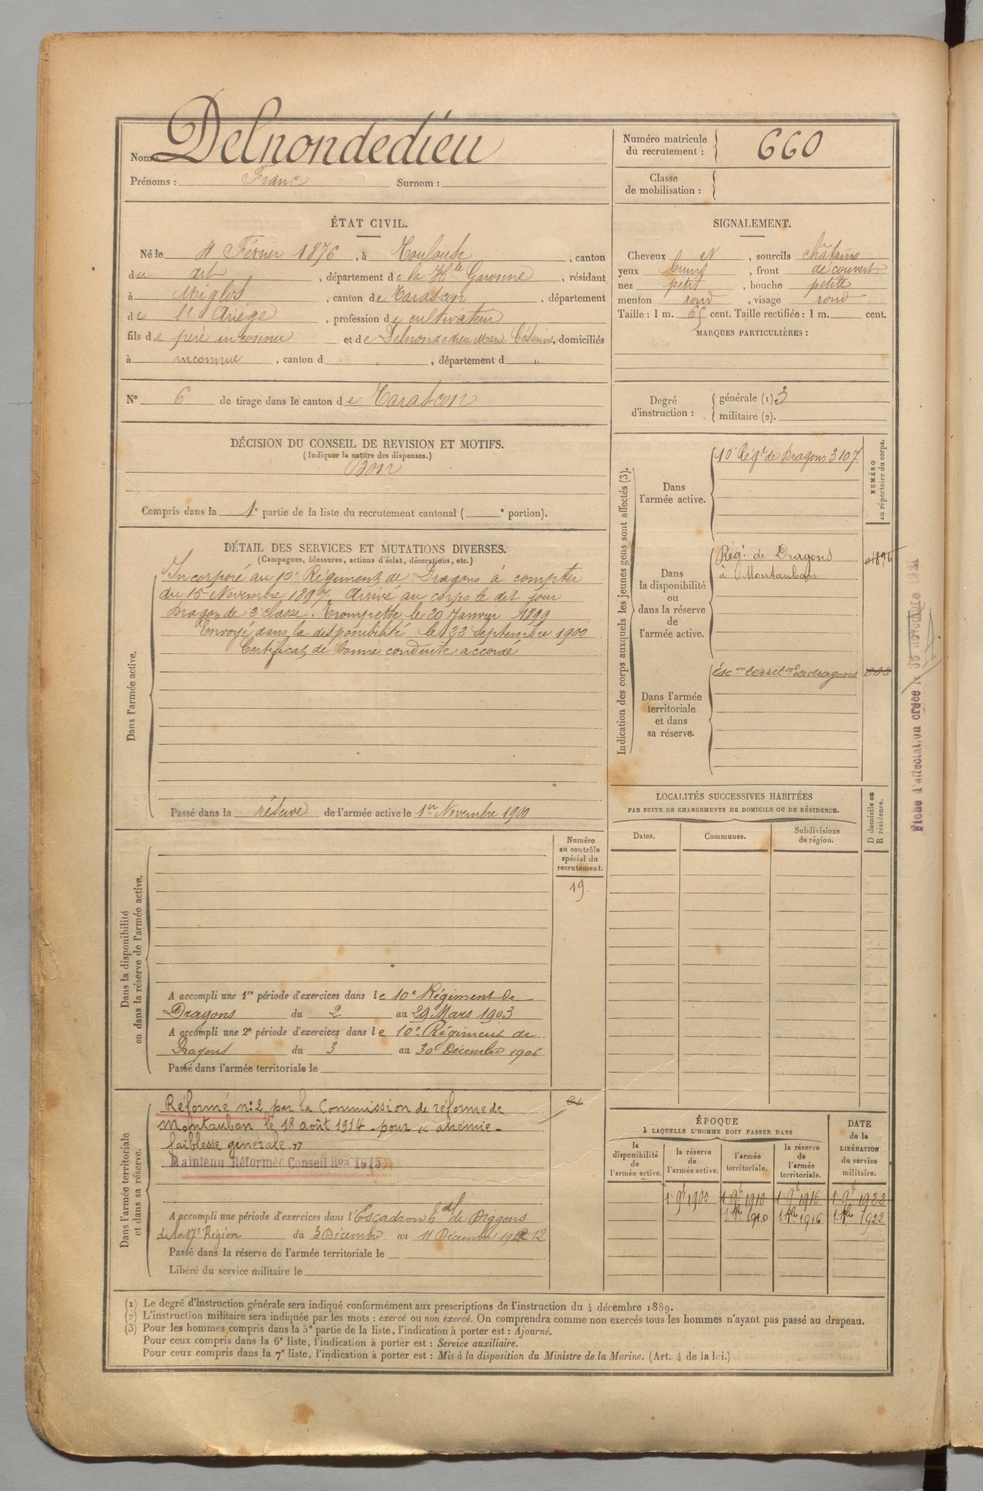 Nom : Delnondedieu
Prénoms : Franc Surnom :
Numéro matricule du recrutement : 660
Classe de mobilisation :
ÉTAT CIVIL.
Né le 4 Février 1876, à Toulouse, canton
du dit, département de la Hte Garonne, résidant
à Miglos, canton de Tarascon, département
de l'Ariège, profession de cultivateur
fils de père inconnu et de Delnondedieu Marie, domiciliés
à inconnue, canton d , département d "
N° 6 de tirage dans le canton de Tarascon
SIGNALEMENT.
Cheveux et, sourcils châtains
yeux, front découvert
nez petit, bouche petite
menton rond, visage rond
Taille : 1 m. 65 cent. Taille rectifiée : 1 m. cent.
MARQUES PARTICULIÈRES :
Degré d'instruction : générale (1). 3
militaire (2).
DÉCISION DU CONSEIL DE REVISION ET MOTIFS.
(Indiquer la nature des dispenses.)
Bon
Compris dans la 1e partie de la liste du recrutement cantonal ( e portion).
DÉTAIL DES SERVICES ET MUTATIONS DIVERSES.
(Campagnes, blessures, actions d'éclat, décorations, etc.)
Dans l'armée active.
Incorporé au 10e Régiment de Dragons à compter
du 15 Novembre 1897. Arrivé au corps le dit jour
Dragon de 2e classe. Trompette le 20 Janvier 1899
Envoyé dans la disponibilité le 22 septembre 1900
Certificat de bonne conduite accordé
Passé dans la réserve de l'armée active le 1er Novembre 1900
Indication des corps auxquels les jeunes gens sont affectés (3).
NUMÉRO au répertoire du corps.
Dans l'armée active.
10e Régt de Dragons 3107
Dans la disponibilité ou dans la réserve de l'armée active.
Régt de Dragons
à Montauban
Dans l'armée territoriale et dans sa réserve.
LOCALITÉS SUCCESSIVES HABITÉES
PAR SUITE DE CHANGEMENTS DE DOMICILE OU DE RÉSIDENCE.
Dates. Communes. Subdivisions de région. D domicile ou R résidence.
Dans la disponibilité ou dans la réserve de l'armée active.
Numéro au contrôle spécial du recrutement.
19
A accompli une 1re période d'exercices dans le 10e Régiment de
Dragons du 2 au 29 Mars 1903
A accompli une 2e période d'exercices dans le 10e Régiment de
Dragons du 3 au 30 Décembre 1906
Passé dans l'armée territoriale le
Dans l'armée territoriale et dans sa réserve.
Réformé n° 2 par la Commission de réforme de
Montauban le 18 août 1914 pour anémie
faiblesse générale
Maintenu Réformé Conseil Ron 1915
A accompli une période d'exercices dans l'Escadron de Dragons
de la 17e Région du 3 Décembre au 11 Décembre 1912
Passé dans la réserve de l'armée territoriale le
Libéré du service militaire le
ÉPOQUE
À LAQUELLE L'HOMME DOIT PASSER DANS
la disponibilité de l'armée active. la réserve de l'armée active. l'armée territoriale. la réserve de l'armée territoriale.
DATE de la LIBÉRATION du service militaire.
1 9bre 1900 1 9bre 1910 1 9bre 1916 1 9bre 1922
1 8bre 1910 1 8bre 1916 1 8bre 1922
(1) Le degré d'instruction générale sera indiqué conformément aux prescriptions de l'instruction du 4 décembre 1889.
(2) L'instruction militaire sera indiquée par les mots : exercé ou non exercé. On comprendra comme non exercés tous les hommes n'ayant pas passé au drapeau.
(3) Pour les hommes compris dans la 5e partie de la liste, l'indication à porter est : Ajourné.
Pour ceux compris dans la 6e liste, l'indication à porter est : Service auxiliaire.
Pour ceux compris dans la 7e liste, l'indication à porter est : Mis à la disposition du Ministre de la Marine. (Art. 4 de la loi.)